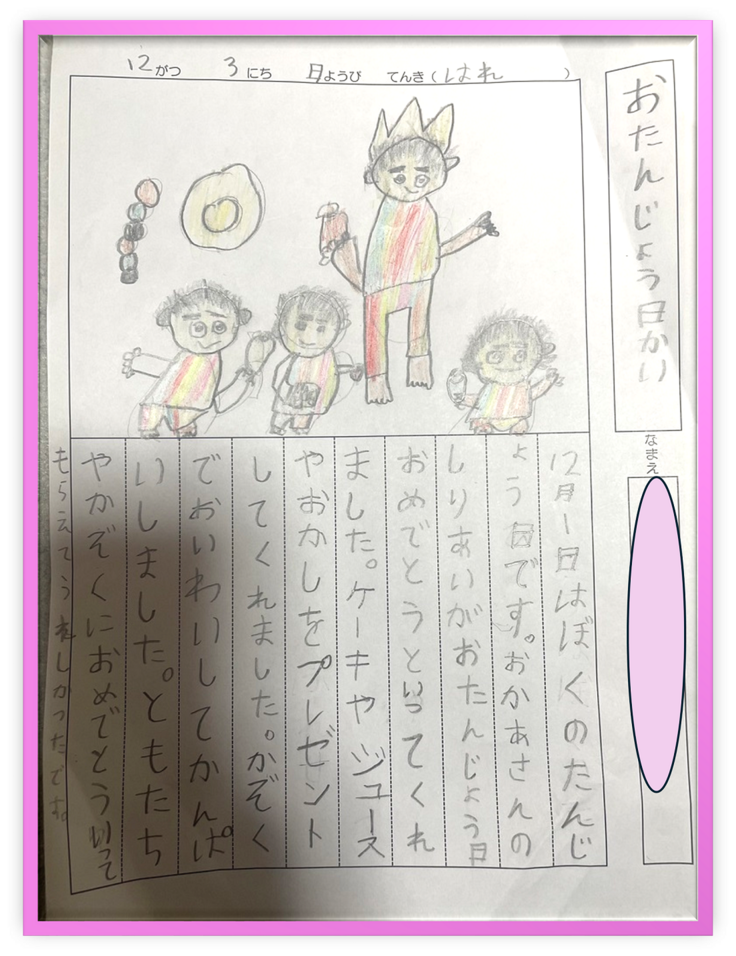 おたんじょう日かい
なまえ
12がつ 3にち 日ようび てんき(はれ)
12月1日はぼくのたんじ
ょう日です。おかあさんの
しりあいがおたんじょう日
おめでとうといってくれ
ました。ケーキやジュース
やおかしをプレゼント
してくれました。かぞく
でおいわいしてかんぱ
いしました。ともたち
やかぞくにおめでとういって
もらえてうれしかったです。